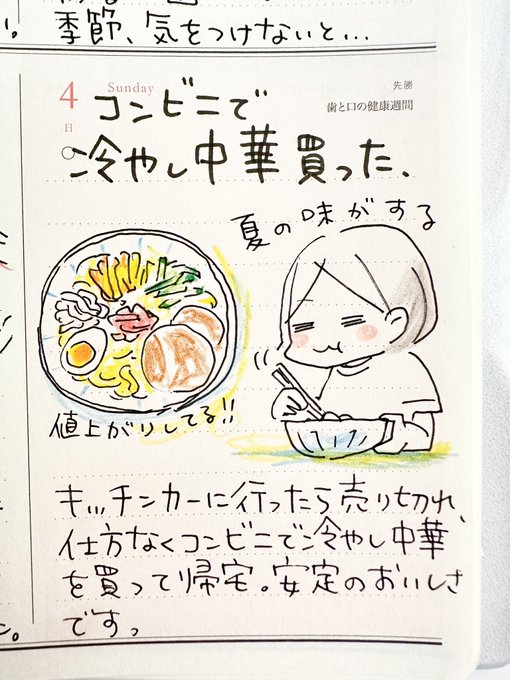 季節、気をつけないと...
4
Sunday
先勝
日
歯と口の健康週間
コンビニで
冷やし中華買った、
夏の味がする
値上がりしてる!!
キッチンカーに行ったら売り切れ、
仕方なくコンビニで冷やし中華
を買って帰宅。安定のおいしさ
です。